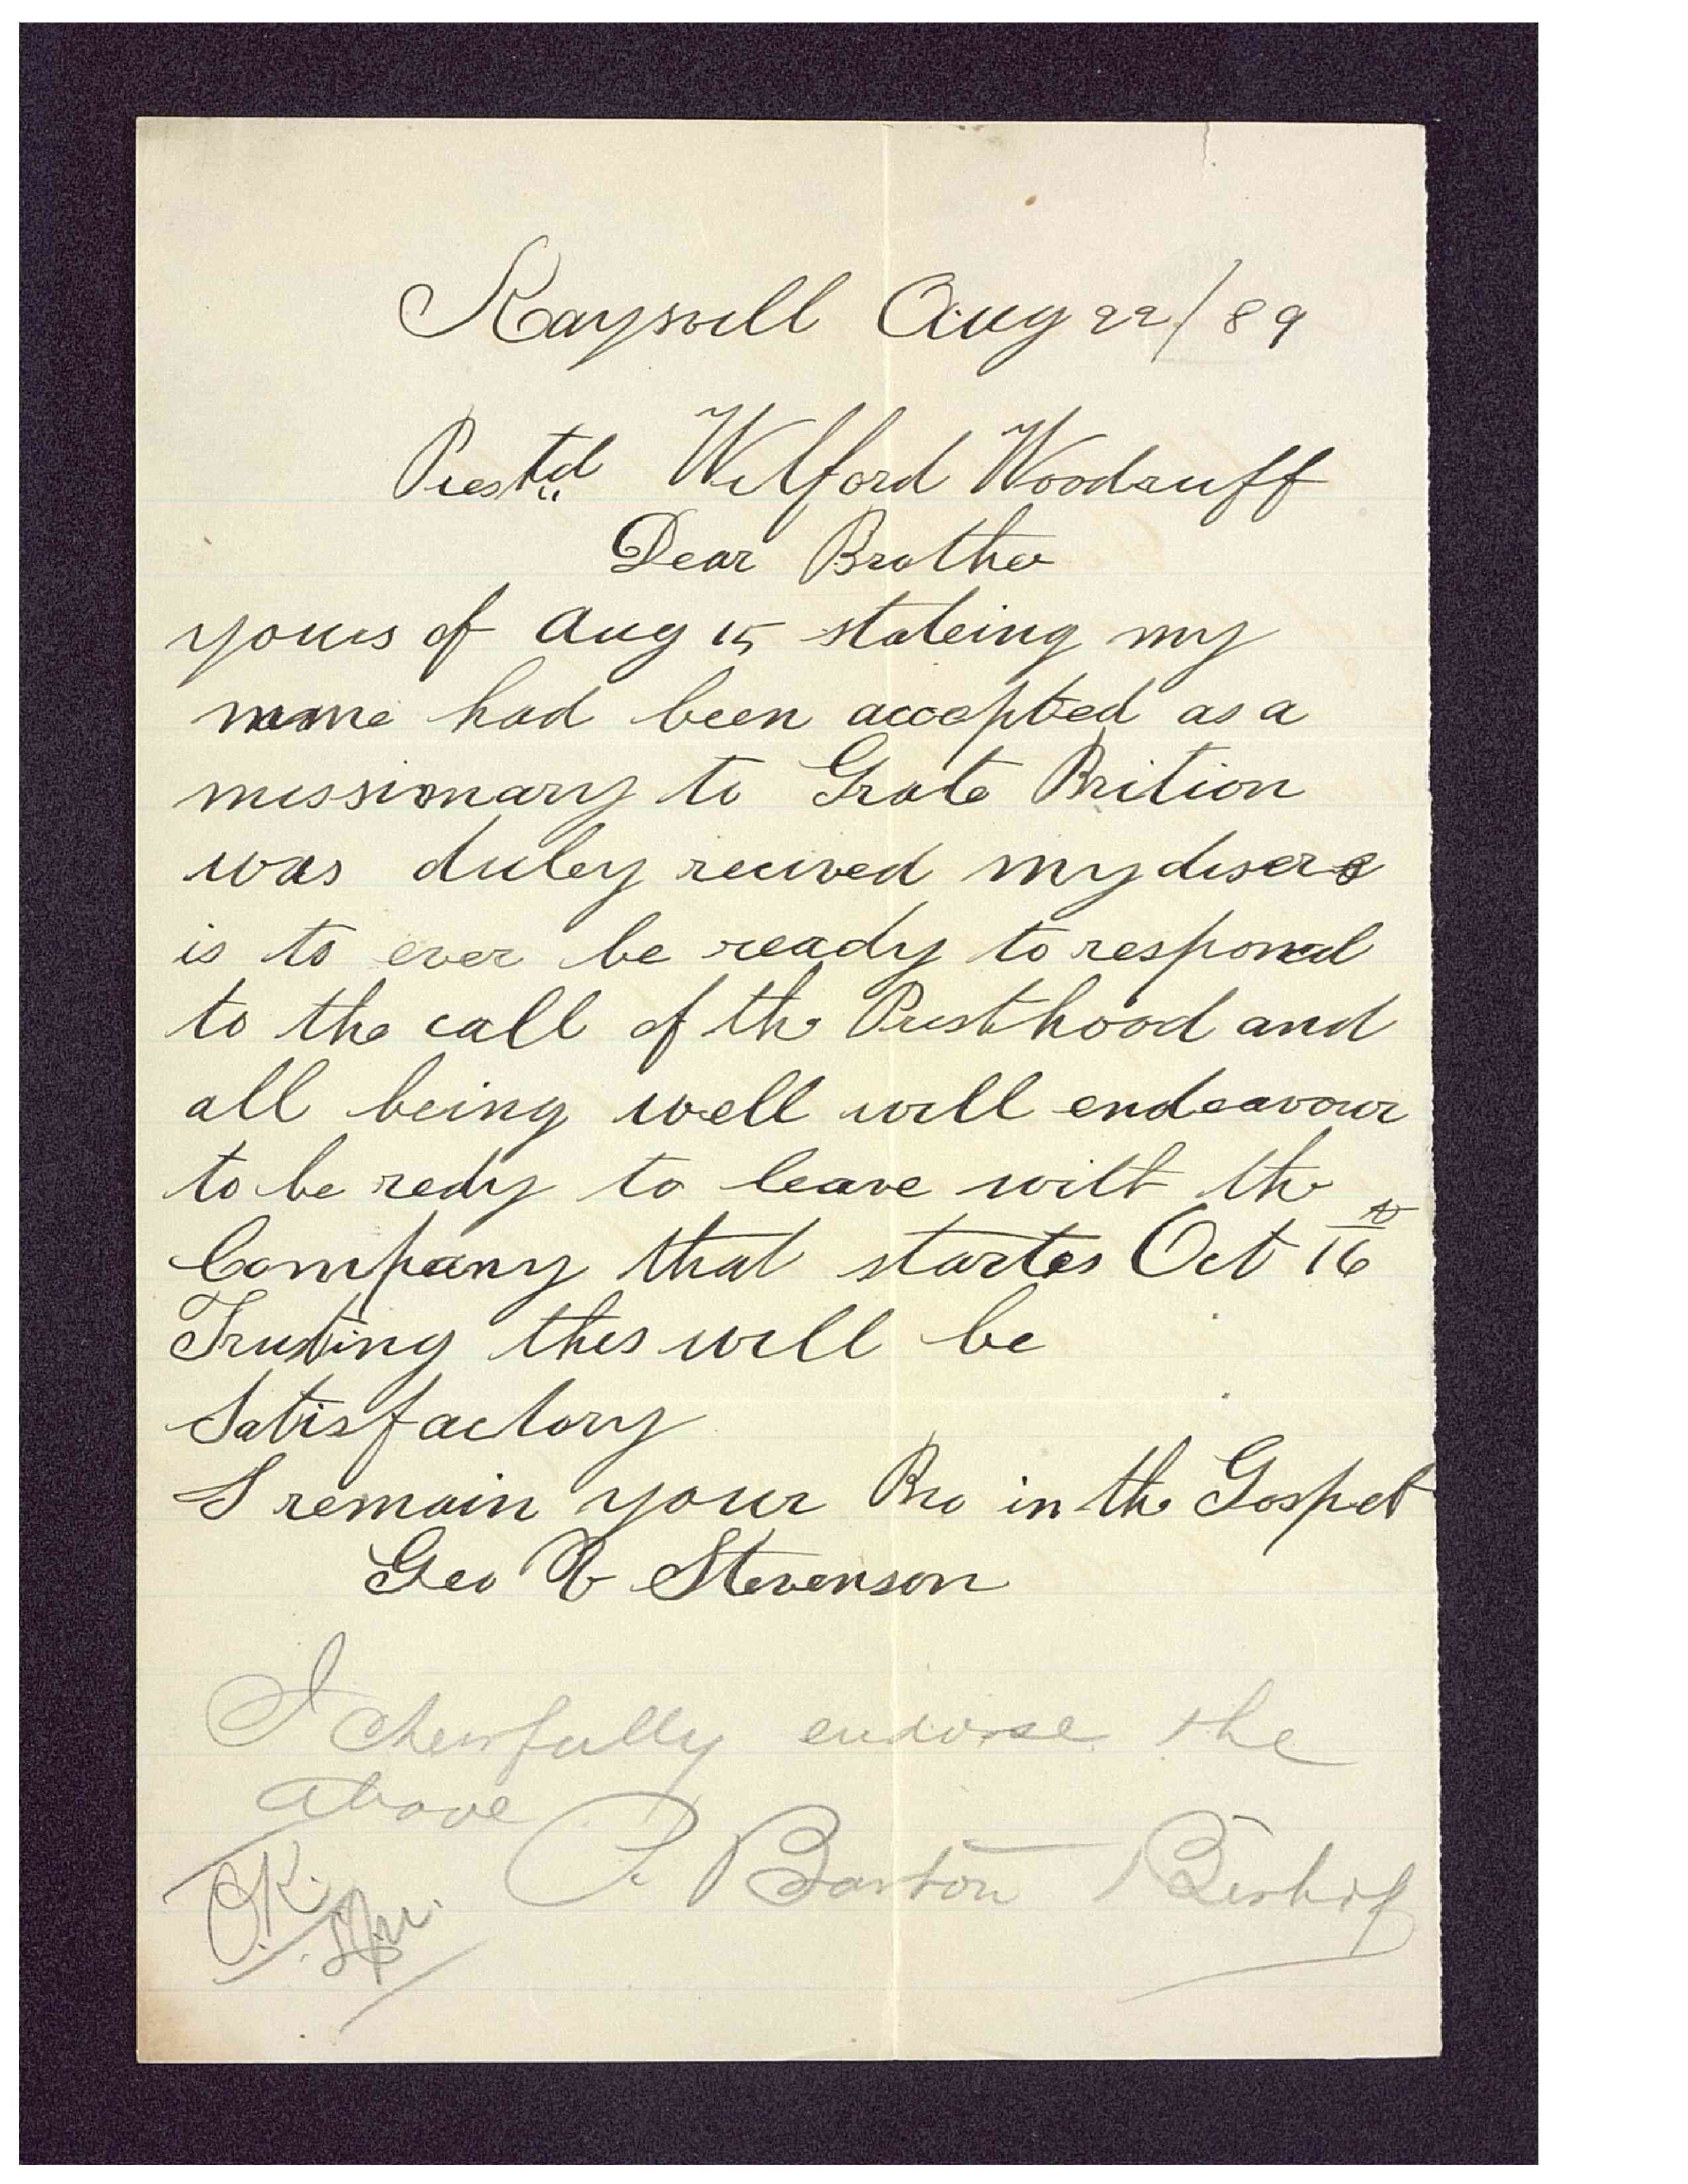 Kaysvill Aug 22/89
Prestd Wilford Woodruff
Dear Brother
yours of Aug 15 stateing my
name had been accepted as a
missionary to Grate Brition
was duley recived my desere
is to ever be ready to respond
to the call of the Presthood and
all being well will endeavour
to be redy to leave with the
Company that startes Oct 16
Trusting this will be
Satisfactory
I remain your Bro in the Gospel
Geo V Stevenson
I cheerfully endorse the
above
P. Barton Bishop
O.K.